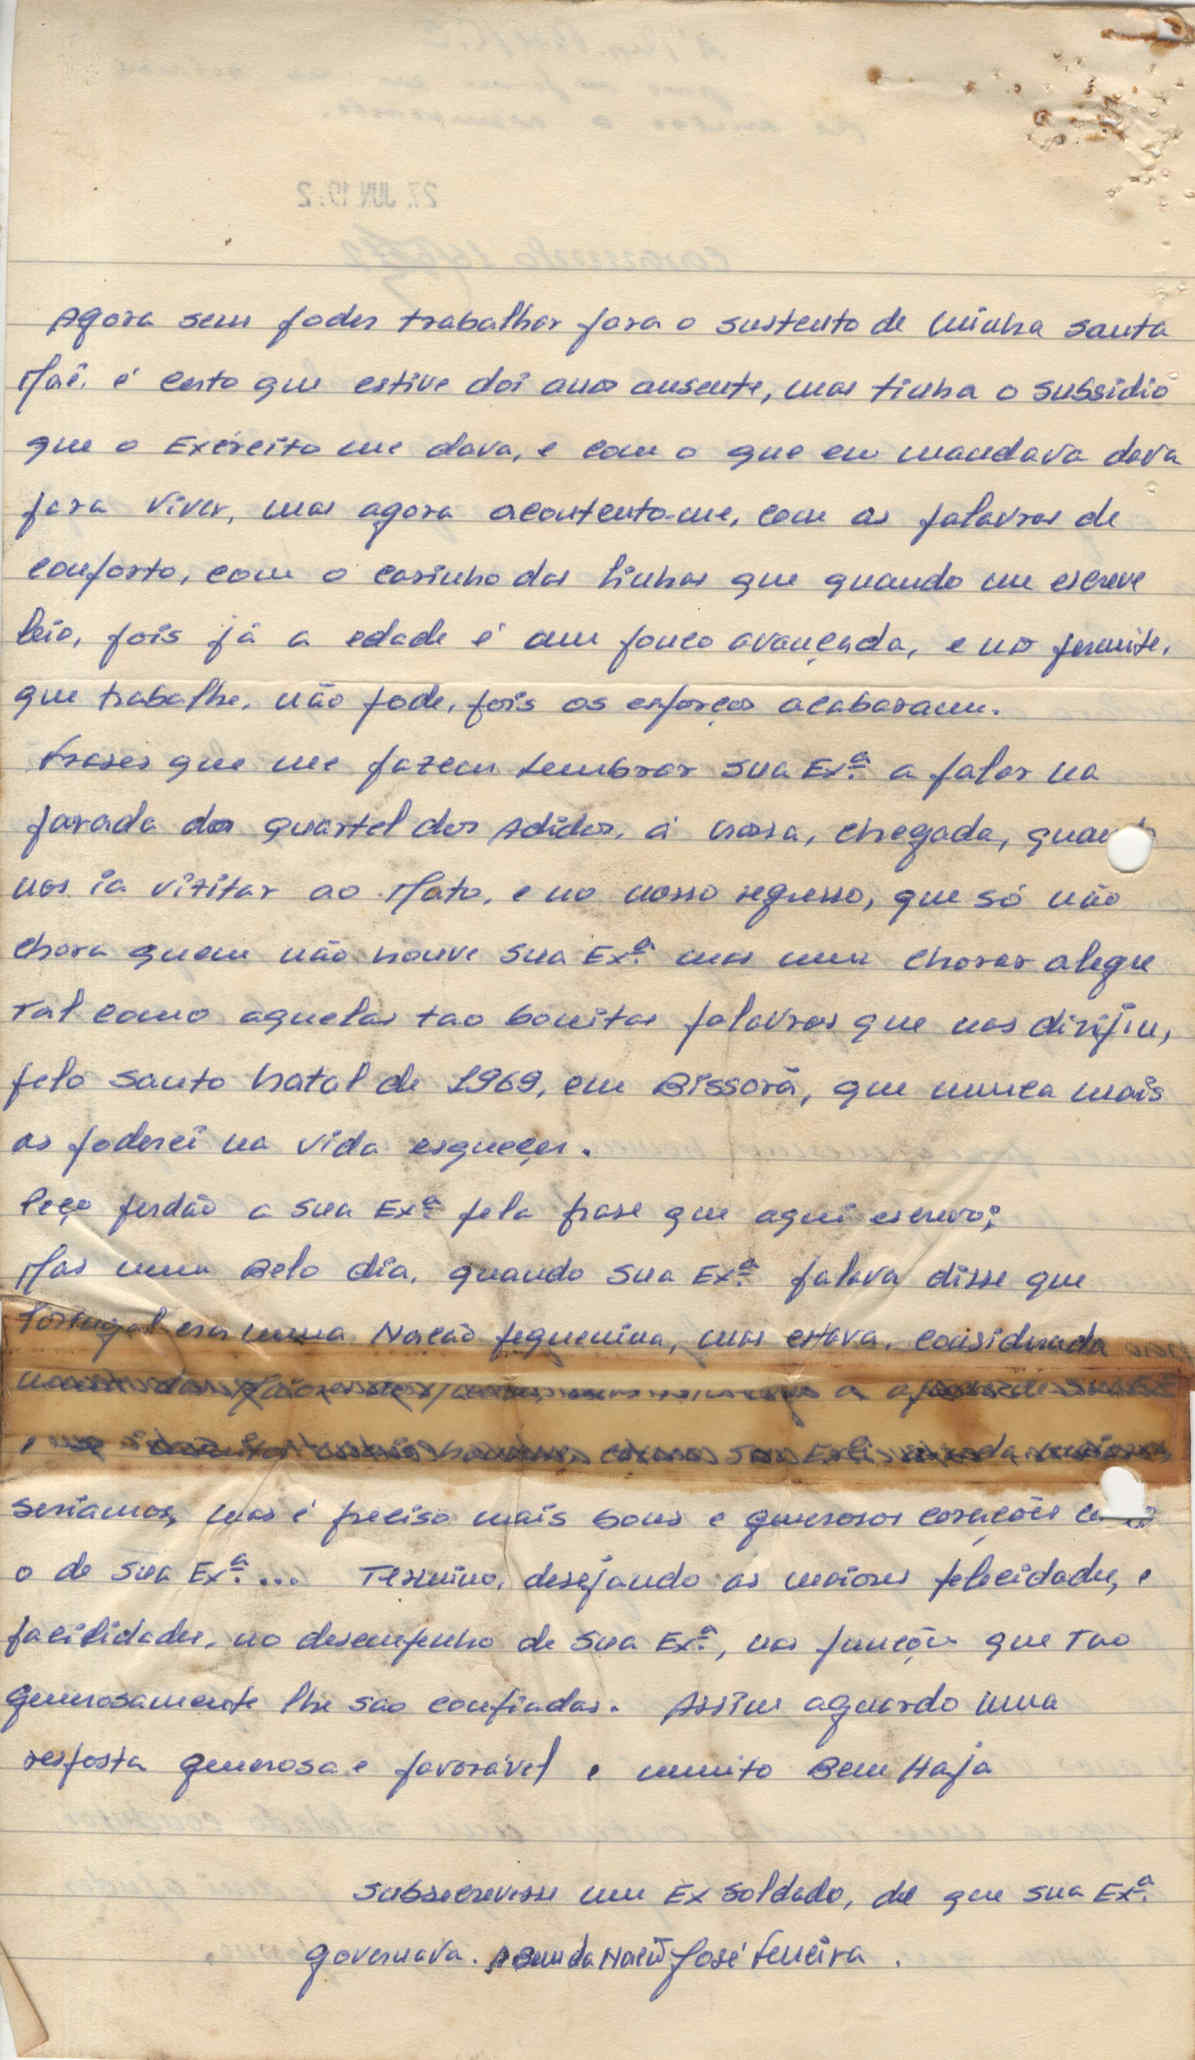 27. JUN 19 2
Agora sem poder trabalhar para o sustento de minha santa
Mãe. é certo que estive doi anos ausente, mas tinha o subsidio
que o Exercito me dava, e com o que eu mandava dava
para viver, mas agora acontento-me, com as palavras de
conforto, com o carinho das linhas que quando me escreve
leio, pois já a edade é um pouco avançada, e no permite,
que trabalhe, não pode, pois os esforços acabaram.
Frases que me fazem lembrar sua Exª. a falar na
parada do quartel dos Adidos, á nossa, chegada,
nos ia vizitar ao Mato, e no nosso regresso, que só não
chora quem não houve sua Exª. mas num chorar alegre
Tal como aquelas tao bonitas palavras que nos dirijiu,
pelo santo Natal de 1969, em Bissorã, que nunca mais
as poderei na vida esqueçer.
Peço perdão a sua Exª. pela frase que aqui escrevo;
Mas num Belo dia, quando sua Exª. falava disse que
Portugal era uma Nacão pequenina, mas estava, considerada
seriamos, mas é preciso mais bons e generosos corações
o de sua Exª.... Termino, desejando as maiores felecidades, e
facilidades, no desempenho de sua Exª., nas funções que Tao
generosamente lhe sao confiadas. Assim aguardo uma
resposta generosa e favorável e muito Bem Haja
Subsecrevesse um Ex soldado, de que sua Exª.
governava. A Bem da Nacão José Ferreira.